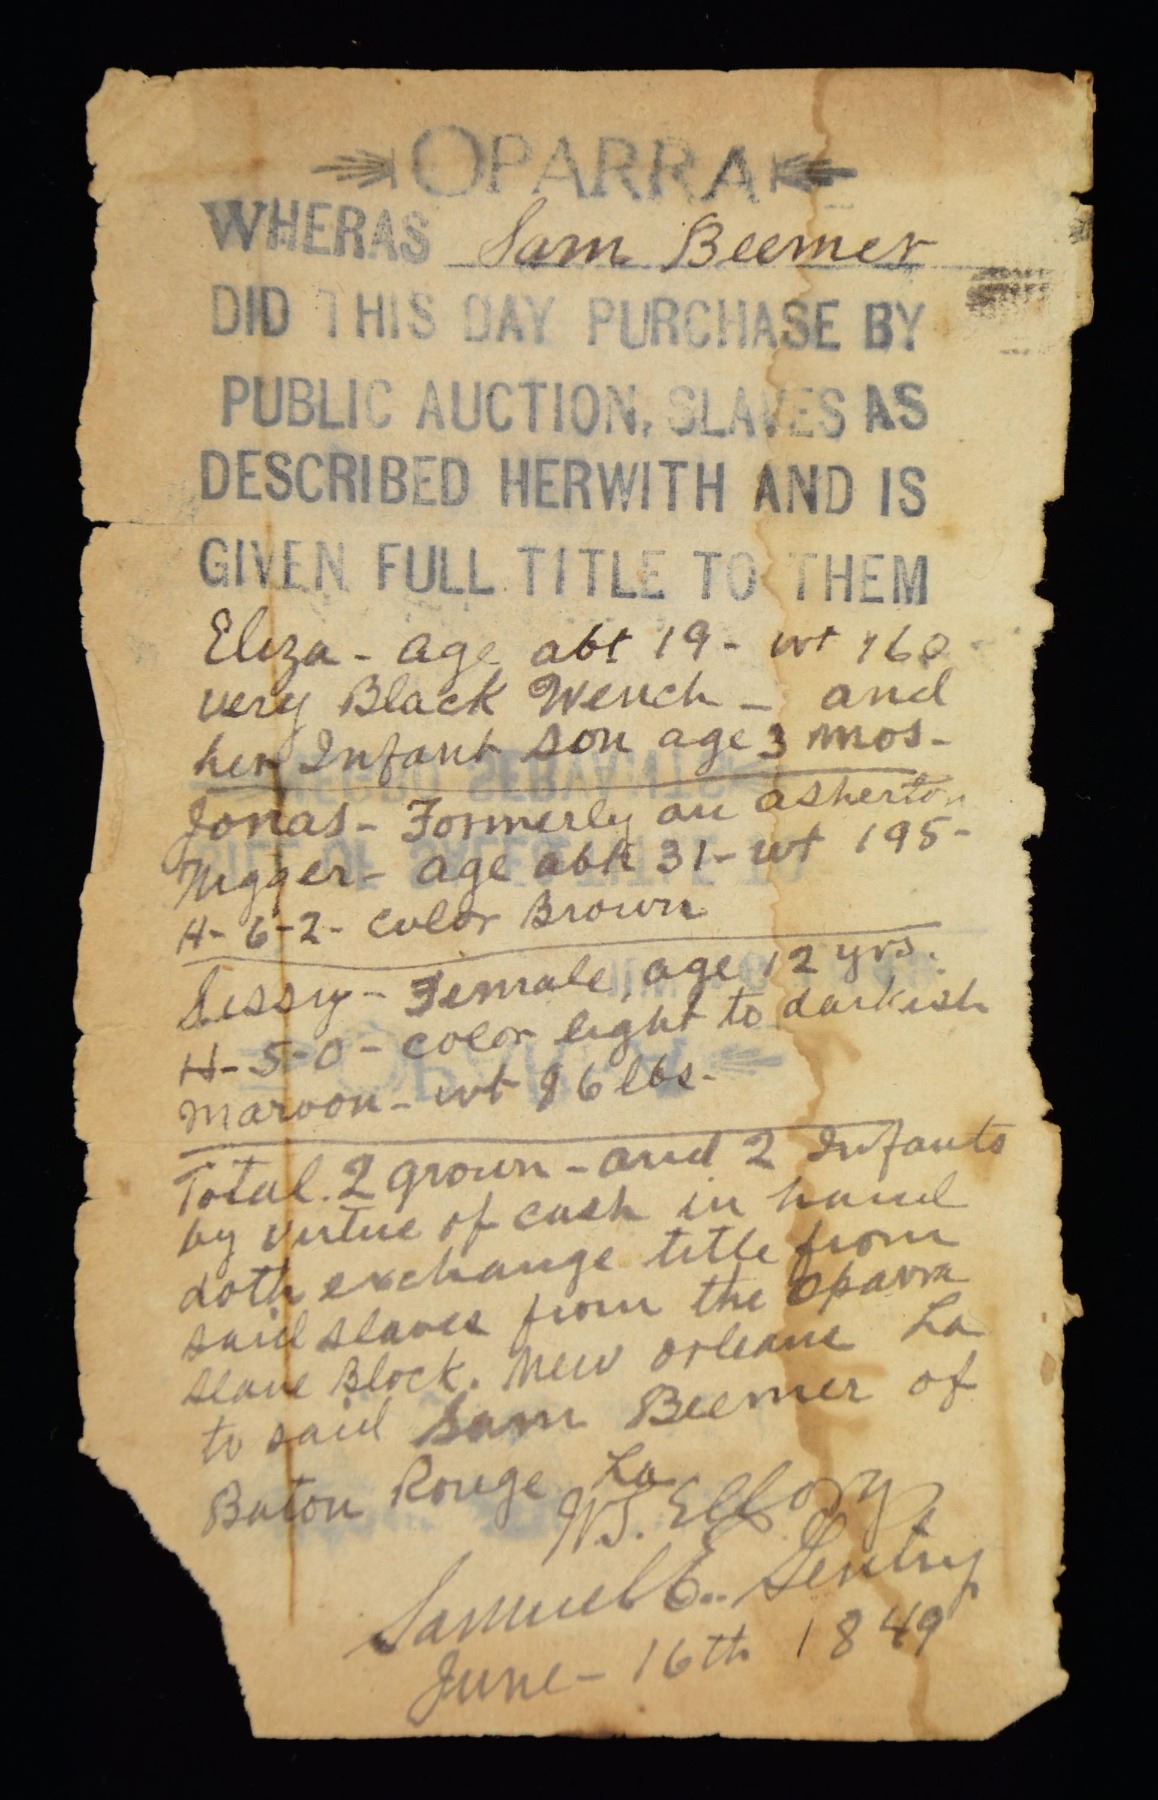 OPARRA
WHERAS Sam Beemer
DID THIS DAY PURCHASE BY
PUBLIC AUCTION, SLAVES AS
DESCRIBED HERWITH AND IS
GIVEN FULL TITLE TO THEM
Eliza - age abt 19 - wt 160
very Black Wench - and
her Infant son age 3 mos -
Jonas - Formerly an asherton
Nigger - age abt 31 - wt 195 -
H - 6 - 2 - color Brown
Sissy - Female, age 12 yrs.
H - 5 - 0 - color light to darkish
maroon - wt 86 lbs -
Total. 2 grown - and 2 Infants
by virtue of cash in hand
doth exchange title from
said slaves from the Oparra
slave Block. New orleans La
to said Sam Beemer of
Baton Rouge La
W.J. Ellory
Samuel E. Gentry
June - 16th 1849